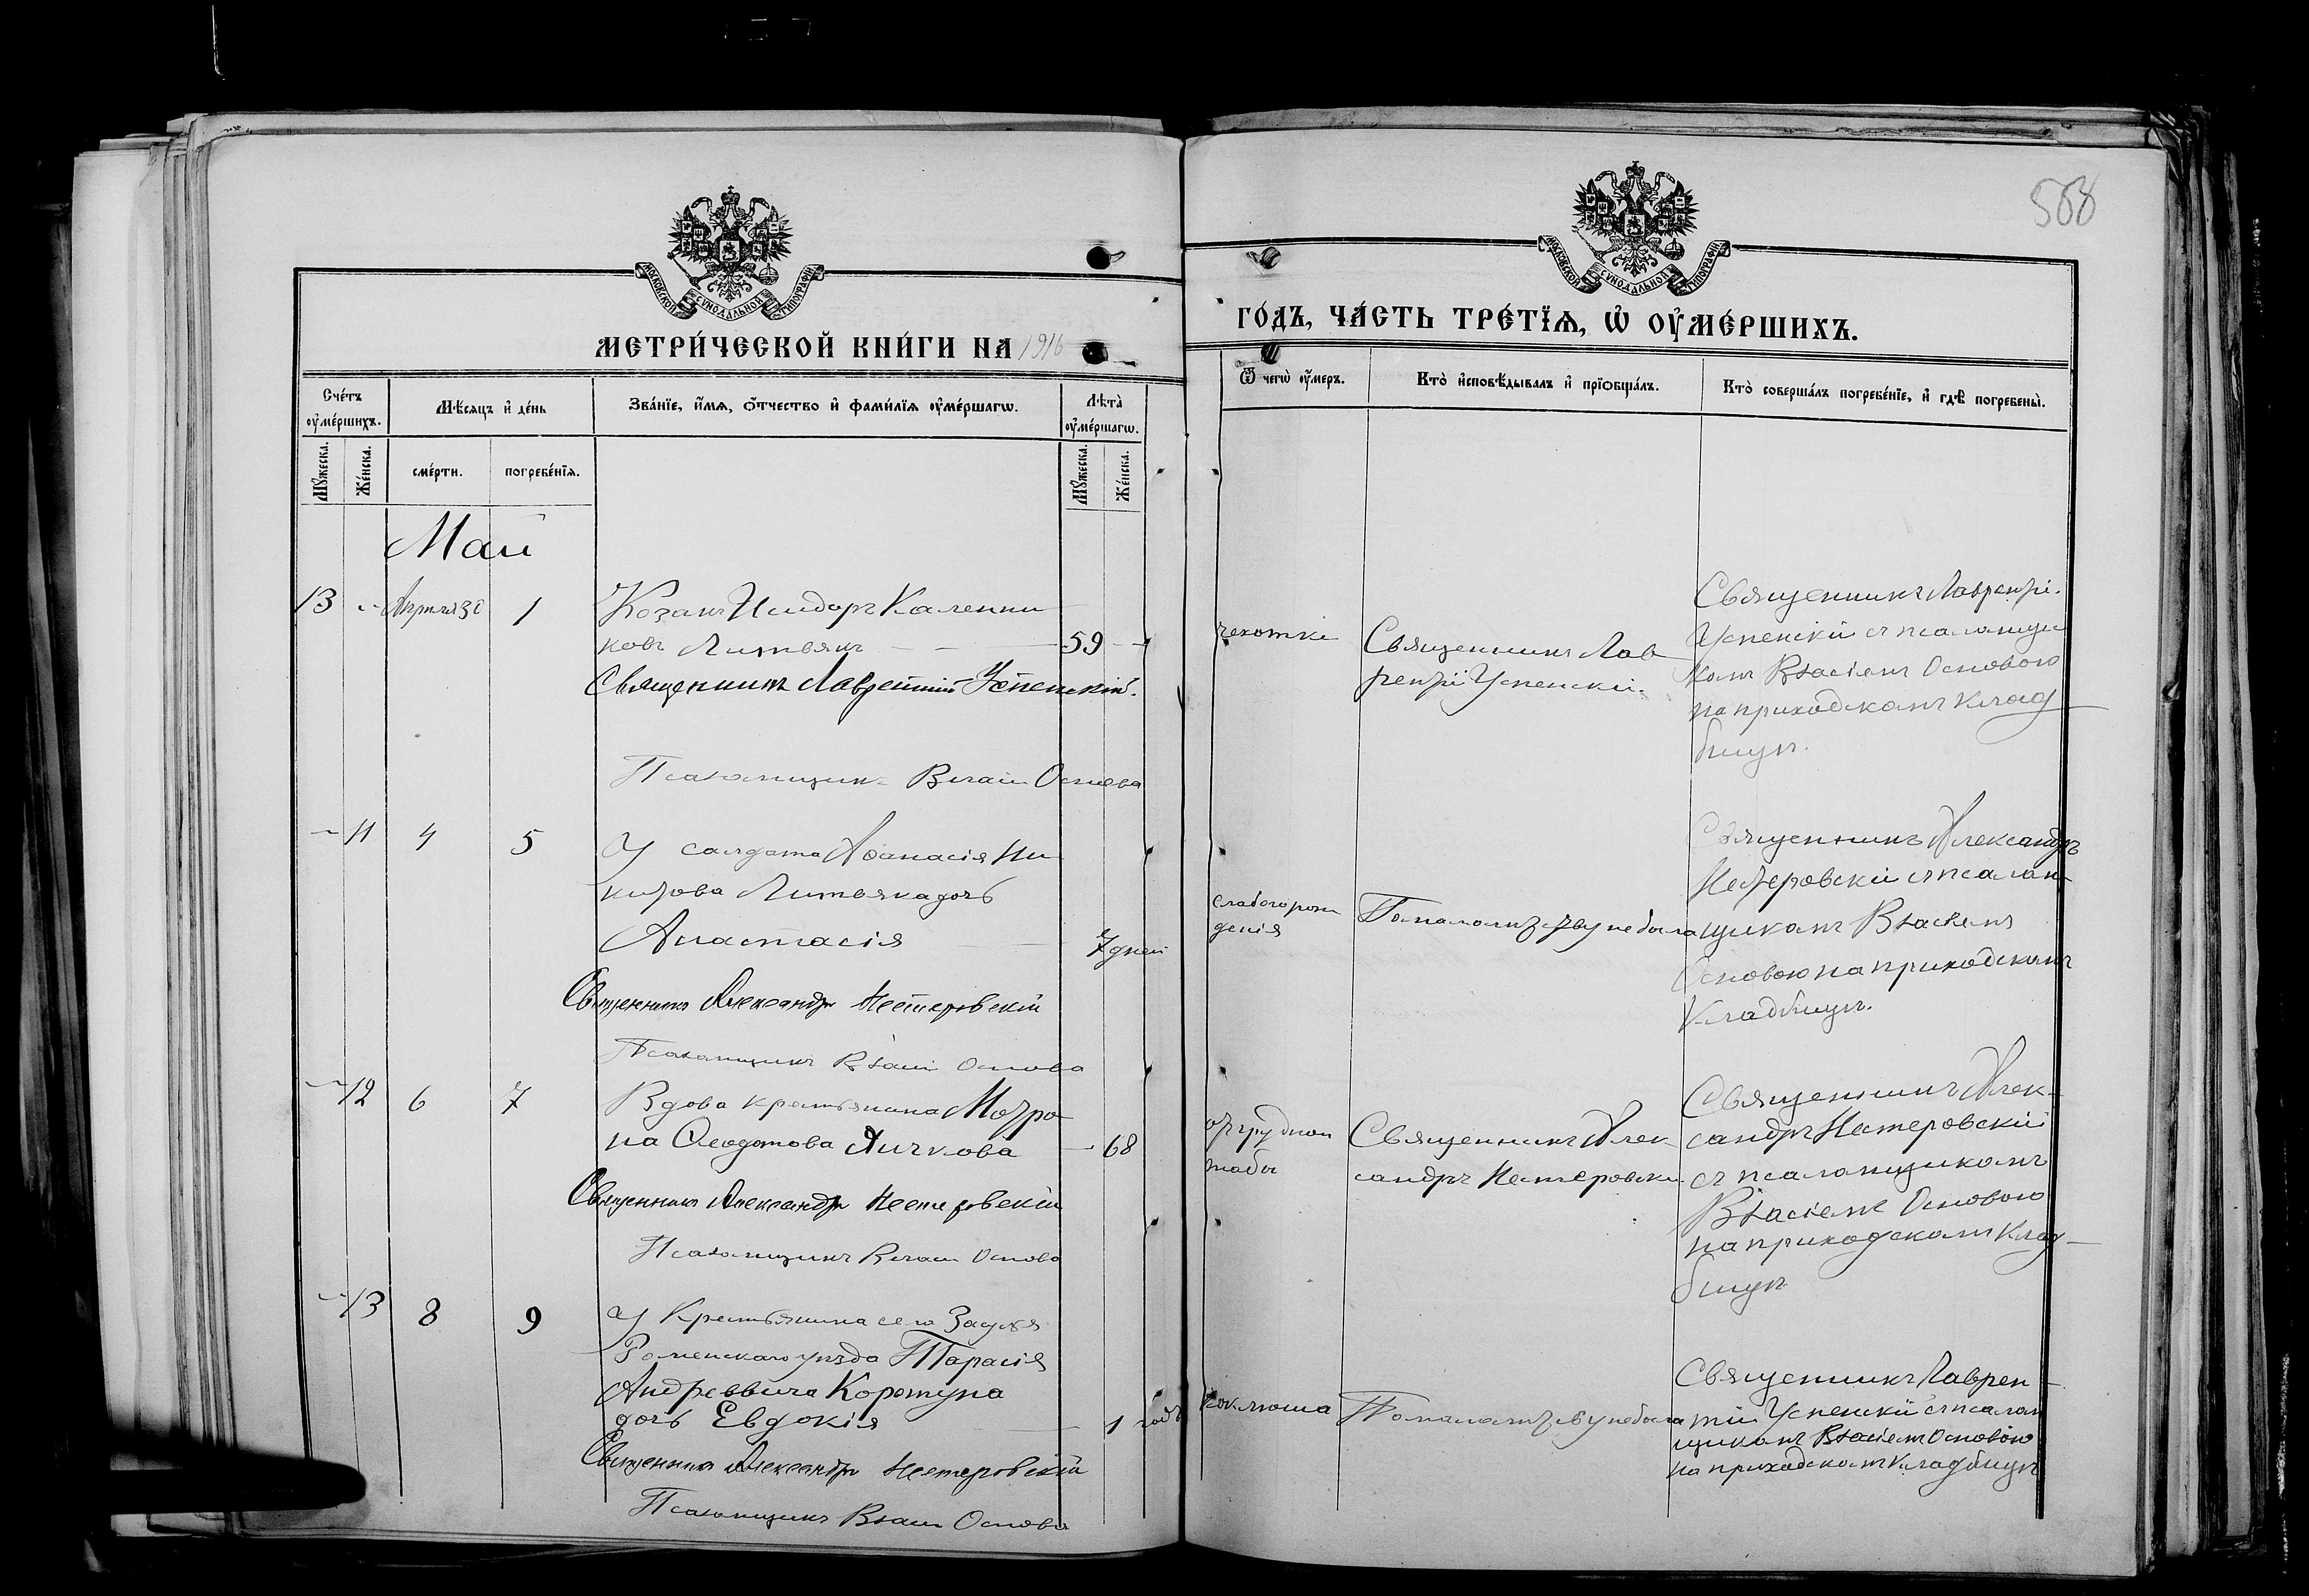 568
МОСКОВСКОЙ СѴНОДАЛЬНОЙ ТИПОГРАФІИ
МОСКОВСКОЙ СѴНОДАЛЬНОЙ ТИПОГРАФІИ
МЕТРИ́ЧЕСКОЙ КНИ́ГИ НА 1916
ГО́ДЪ, ЧА́СТЬ ТРЕ́ТЇѦ, Ѡ҆ ОУ҆МЕ́РШИХЪ.
Сче́тъ оу҆ме́ршихъ.
Мѣ́сѧцъ и҆ де́нь
Зва́нїе, и҆́мѧ, ѻ҆́тчество и҆ фами́лїѧ оу҆ме́ршагѡ.
Лѣта̀ оу҆ме́ршагѡ.
Ѿ чегѡ̀ оу҆́меръ.
Кто̀ и҆сповѣ́дывалъ и҆ прїѻбща́лъ.
Кто̀ соверша́лъ погребе́нїе, и҆ гдѣ̀ погребены̀.
Мꙋ́жеска.
Же́нска.
сме́рти.
погребе́нїѧ.
Мꙋ́жеска.
Же́нска.
Май
13 Апрѣля 30 1
Козакъ Исидоръ Каленни
ковъ Литвякъ 59
Священникъ Лаврентій Успенскій.
Псаломщикъ Власій Основа
чахотки
Священникъ Лав
рентій Успенскій.
Священникъ Лаврентій
Успенскій съ псаломщи
комъ Власіемъ Основою
на приходскомъ клад
бищѣ.
11 4 5
У солдата Аѳанасія Ни
китова Литвяка дочь
Анастасія 7 дней
Священникъ Александръ Нестеровскій
Псаломщикъ Власій Основа
слаборож
денія
По малолѣтству не была
Священникъ Александръ
Нестеровскій съ псалом
щикомъ Власіемъ
Основою на приходскомъ
кладбищѣ.
12 6 7
Вдова крестьянина Мотро
на Ѳеодотова Яичкова 68
Священникъ Александръ Нестеровскій
Псаломщикъ Власій Основа
отъ грудной
жабы
Священникъ Алек
сандръ Нестеровскій
Священникъ Алек
сандръ Нестеровскій
съ псаломщикомъ
Власіемъ Основою
на приходскомъ клад
бищѣ
13 8 9
У крестьянина села
Роменскаго уѣзда Тарасія
Андреевича Коротуна
дочь Евдокія 1 годъ
Священникъ Александръ Нестеровскій
Псаломщикъ Власій Основа
коклюша
По малолѣтству не была
Священникъ Лаврен
тій Успенскій съ псалом
щикомъ Власіемъ Основою
на приходскомъ кладбищѣ